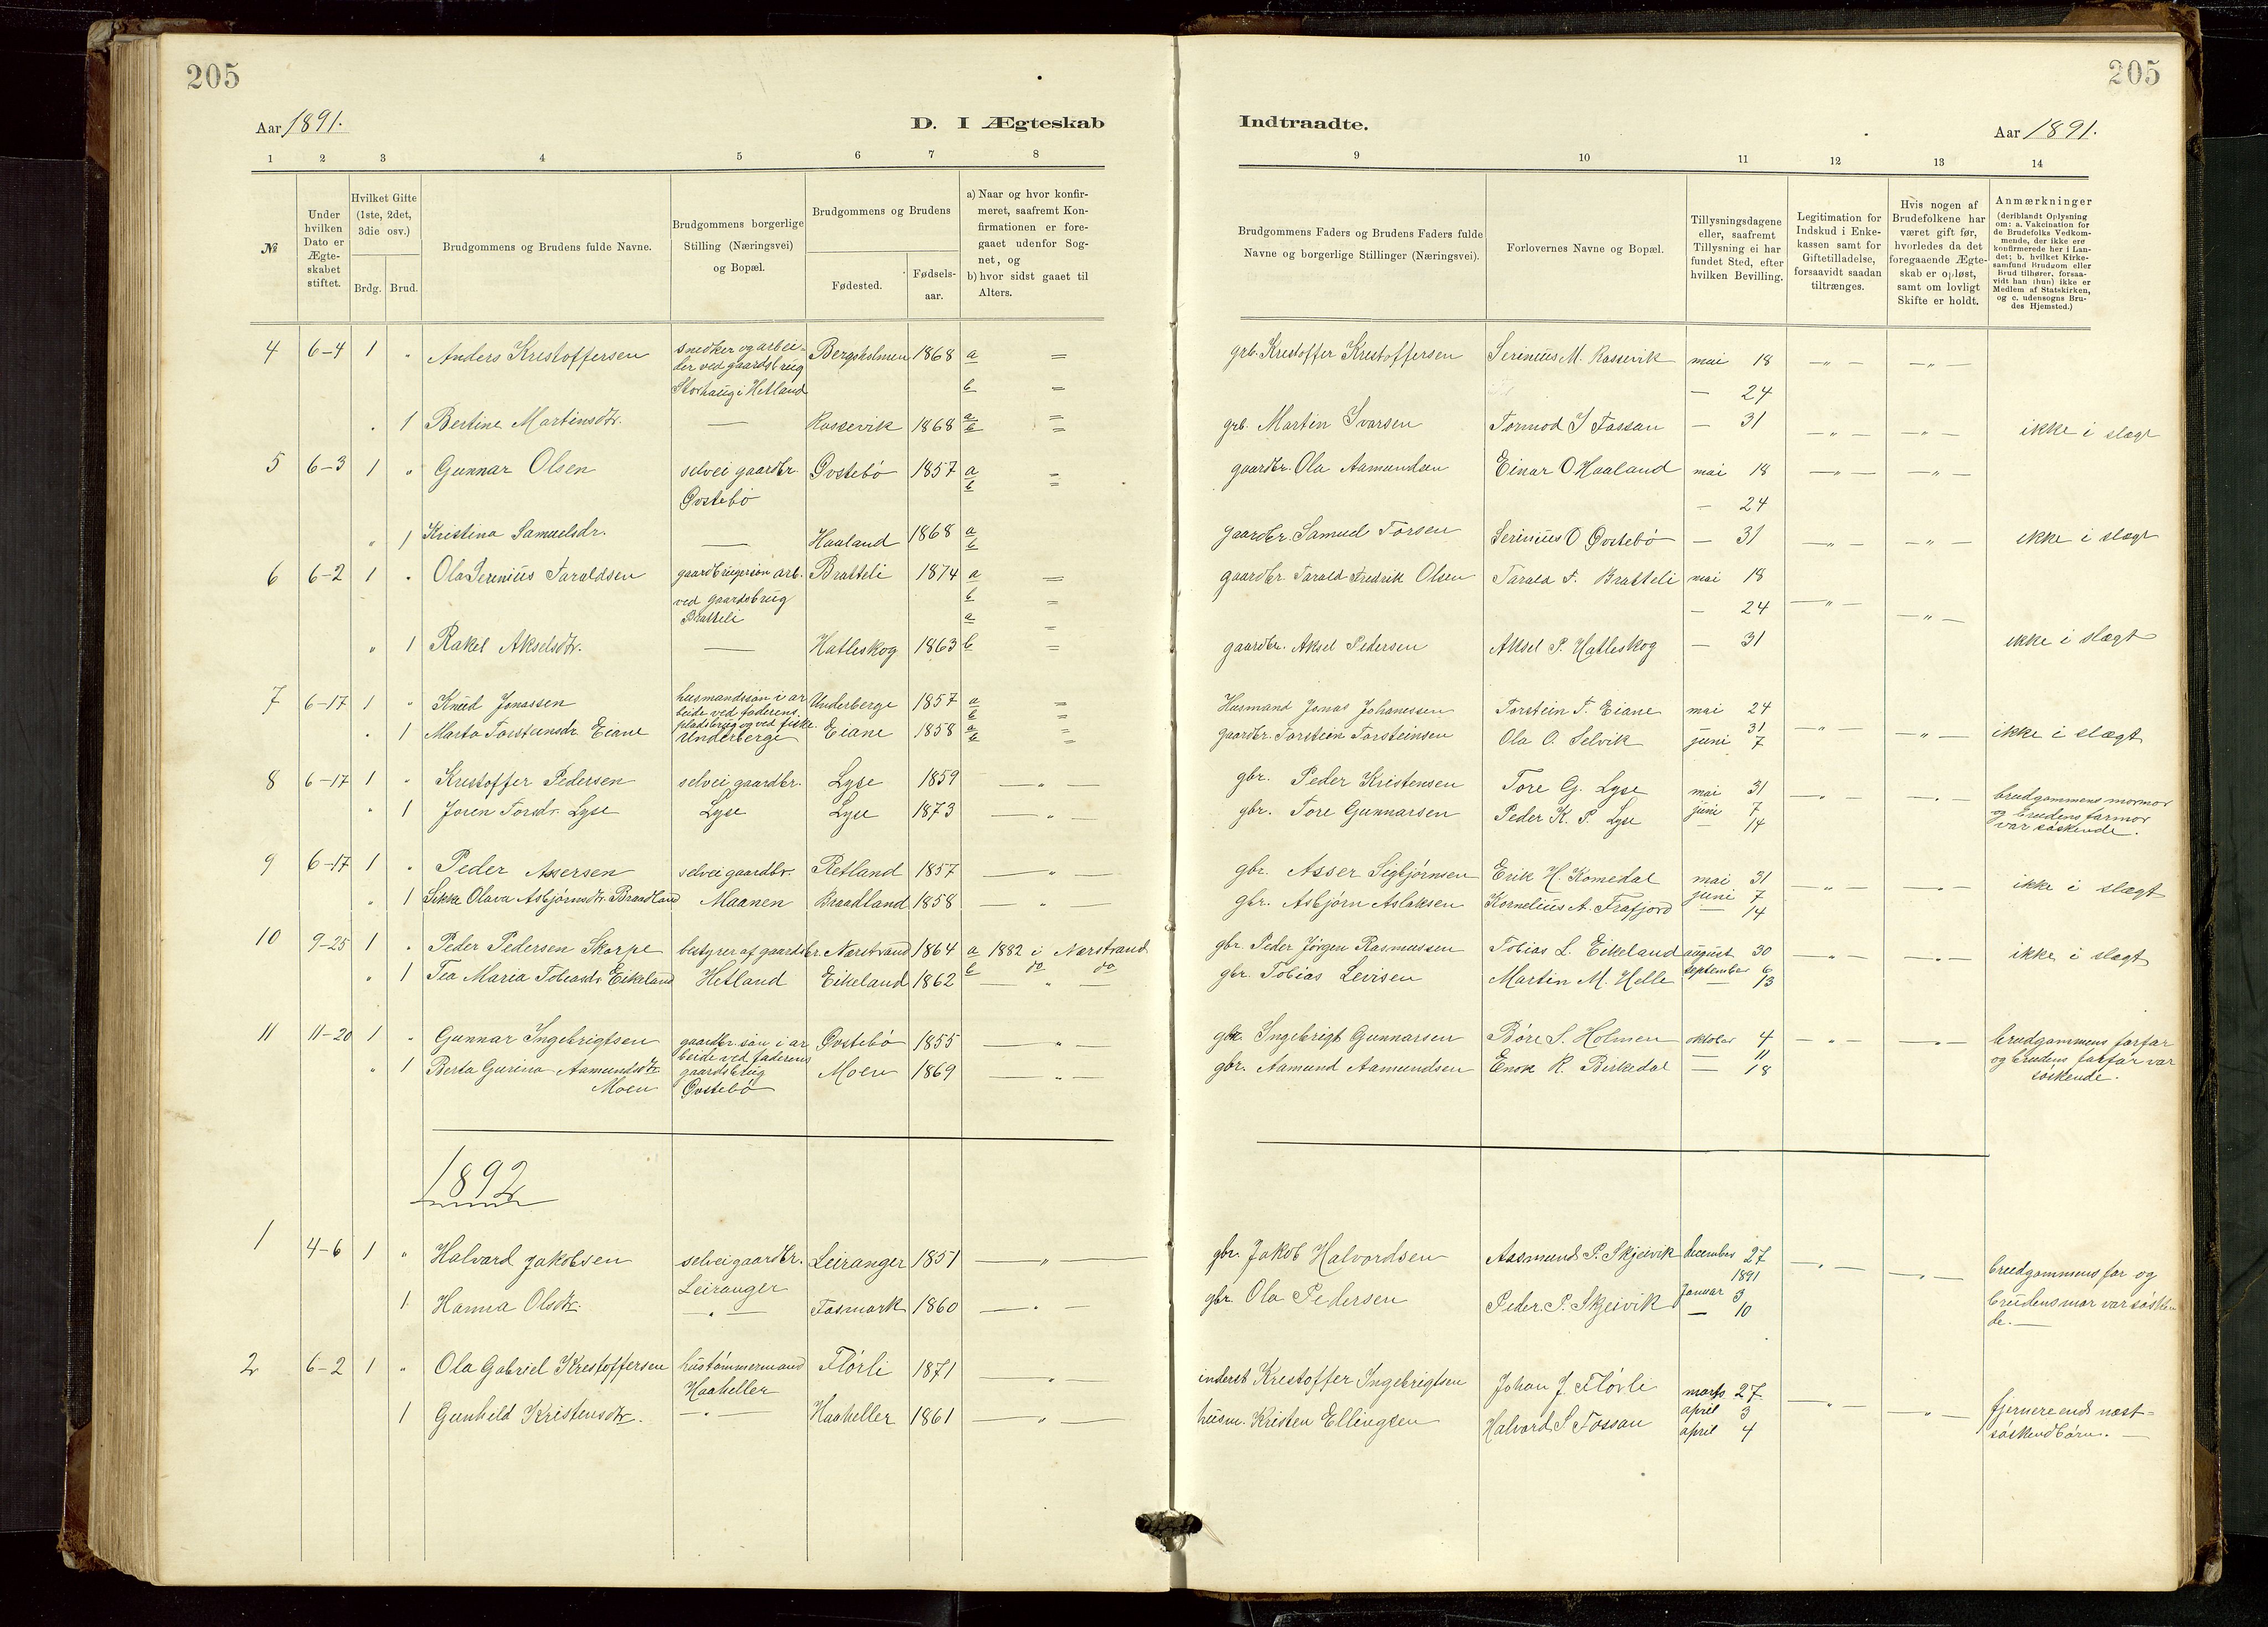 205
205
Aar 1891.
D. I Ægteskab
Indtraadte.
Aar 1891.
1 2 3 4 5 6 7 8
9 10 11 12 13 14
№
Under hvilken Dato er Ægte-skabet stiftet.
Hvilket Gifte (1ste, 2det, 3die osv.)
Brdg. Brud.
Brudgommens og Brudens fulde Navne.
Brudgommens borgerlige Stilling (Næringsvei) og Bopæl.
Brudgommens og Brudens
Fødested.
Fødsels-aar.
a) Naar og hvor konfir-meret, saafremt Kon-firmationen er fore-gaaet udenfor Sog-net, og
b) hvor sidst gaaet til Alters.
Brudgommens Faders og Brudens Faders fulde Navne og borgerlige Stillinger (Næringsvei).
Forlovernes Navne og Bopæl.
Tillysningsdagene eller, saafremt Tillysning ei har fundet Sted, efter hvilken Bevilling.
Legitimation for Indskud i Enke-kassen samt for Giftetilladelse, forsaavidt saadan tiltrænges.
Hvis nogen af Brudefolkene har været gift før, hvorledes da det foregaaende Ægte-skab er opløst, samt om lovligt Skifte er holdt.
Anmærkninger
(deriblandt Oplysning om: a. Vakcination for de Brudefolks Vedkom-mende, der ikke ere konfirmerede her i Lan-det; b. hvilket Kirke-samfund Brudgom eller Brud tilhører, forsaa-vidt han (hun) ikke er Medlem af Statskirken, og c. udensogns Bru-des Hjemsted.)
4 6-4 1 " Anders Krestoffersen snedker og arbei- Bergsholmen 1868 a =
der ved gaardsbrug
Storhaug i Hetland b =
1 Bertine Martinsdtr. — Rossevik 1868 a =
b =
grb. Krestoffer Krestoffersen Serinius M. Rossevik mai 18 —"— —"—
— 24
grb. Martin Ivarsen Tormod I Fossan — 31 —"— —"— ikke i slægt
5 6-3 1 " Gunnar Olsen selvei gaardbr. Øvstebø 1857 a =
Øvstebø b =
" 1 Kristina Samuelsdr. — Haaland 1868 a
b
gaardbr. Ola Aamundsen Einar O Haaland mai 18 —"— —"—
— 24
gaardbr. Samuel Torsen Serinius O Øvstebø — 31 —"— —"— ikke i slægt
6 6-2 1 " Ola Serinius Taraldsen gaardbrugersøn arb. Bratteli 1874 a =
ved gaardsbrug b =
Bratteli a =
" 1 Rakel Akselsdtr. — Hatleskog 1863 b =
gaardbr. Tarald Fredrik Olsen Tarald F. Bratteli mai 18
— 24 —"— —"—
gaardbr. Aksel Pedersen Aksel P. Hatleskog — 31 ikke i slægt
7 6-17 1 " Knud Jonassen husmandssøn i ar Underberge 1857 a =
beide ved faderens b =
pladsbrug og ved fiske
" 1 Marta Torsteinsdr. Eiane Underberge Eiane 1858 a =
b =
Husmand Jonas Johanessen Torstein T. Eiane mai 24
31
gaardbr. Torstein Torsteinsen Ola O. Selvik juni 7 —"— —"— ikke i slægt
8 6-17 1 " Krestoffer Pedersen selvei gaardbr. Lyse 1859 —"—
" 1 Joren Torsdr. Lyse Lyse Lyse 1873 —"—
gbr. Peder Kristensen Tore G. Lyse mai 31 —"— —"— brudgommens mormor
gbr. Tore Gunnarsen Peder K. P. Lyse juni 7 og brudens farmor
— 14 var søskende.
9 6-17 1 " Peder Assersen selvei gaardbr. Retland 1857 —"—
" 1 Sikke Olava Asbjørnsdtr. Braadland Maanen Braadland 1858 —"—
gbr. Asser Sigbjørnsen Erik H. Komedal mai 31 —"— —"— ikke i slægt
gbr. Asbjørn Aslaksen Kornelius A. Frafjord juni 7
— 14
10 9-25 1 " Peder Pedersen Skorpe bestyrer af gaardsbr. Nærstrand 1864 a 1882 i Nærstrand
b do do
" 1 Tea Maria Tobiasdr. Eikeland Hetland Eikeland 1862 —"—
gbr. Peder Jørgen Rasmussen Tobias L. Eikeland august 30 —"— —"— ikke i slægt
gbr. Tobias Levisen Martin M. Helle september 6
— 13
11 11-20 1 " Gunnar Ingebrigtsen gaardbr. søn i ar Øvstebø 1855 —"—
beide ved faderens
" 1 Berta Gurina Aamundsdtr. gaardsbrug Moen 1869 —"—
Moen Øvstebø
gbr. Ingebrigt Gunnarsen Børe S. Holmen oktober 4 —"— —"— brudgommens farfar
— 11 og brudens farfar var
gbr. Aamund Aamundsen Enok R. Birkedal — 18 søskende.
1892
1 4-6 1 " Halvard Jakobsen selvei gaardbr. Leiranger 1851 —"—
Leiranger
1 Hanna Olsdtr. —"— Fosmark 1860 —"—
gbr. Jakob Halvordsen Aasmund P. Skjeivik december 27 —"— —"— brudgommens far og
1891
gbr. Ola Pedersen Peder P. Skjeivik Januar 3 brudens mor var søsken
— 10 de.—
2 6-2 1 " Ola Gabriel Krestoffersen hustømmermand Flørli 1871 —"—
Haaheller
1 Gunhild Kristensdtr. —"— Haaheller 1861 —"—
inderst Krestoffer Ingebrigtsen Johan J. Flørli marts 27
april 3 —"— —"— fjernere end næst-
husm. Kristen Ellingsen Halvard S Fossan april 4 søskendbørn.—